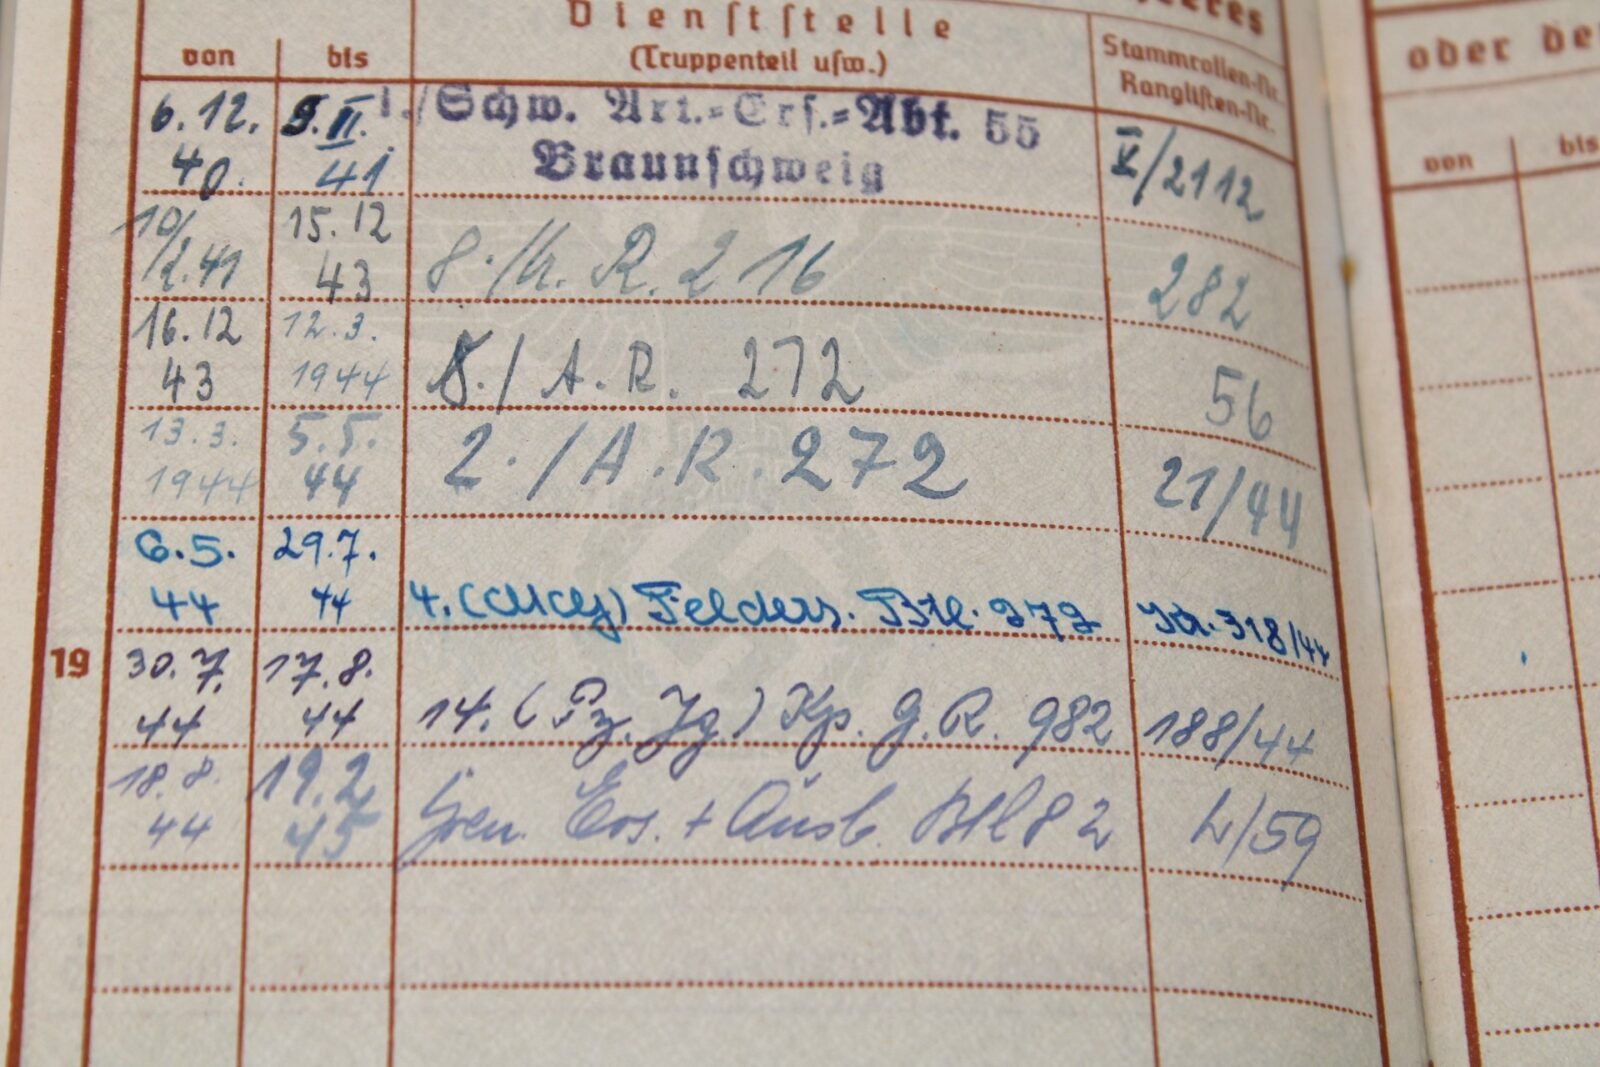 eeres
Dienststelle
von bis (Truppenteil usw.) Stammrollen-Nr.
Ranglisten-Nr.
oder de
von bis
6.12. 9.II. 1./Schw. Art.=Ers.=Abt. 55
40. 41. Braunschweig V/2112
10/ 15.12
2.41 43 8./A.R. 216 282
16.12 12.3.
43 1944 8./A.R. 272 56
13.3. 5.5.
1944 44 2./A.R. 272 21/44
6.5. 29.7.
44 44 4.(MG) Felders. Btl. 272 Nr. 318/44
19 30.7. 17.8.
44 44 14. (Pz. Jg.) Kp. G.R. 982 188/44
18.8. 19.2
44 45 Gren. Ers. + Ausb. Btl 82 L/59